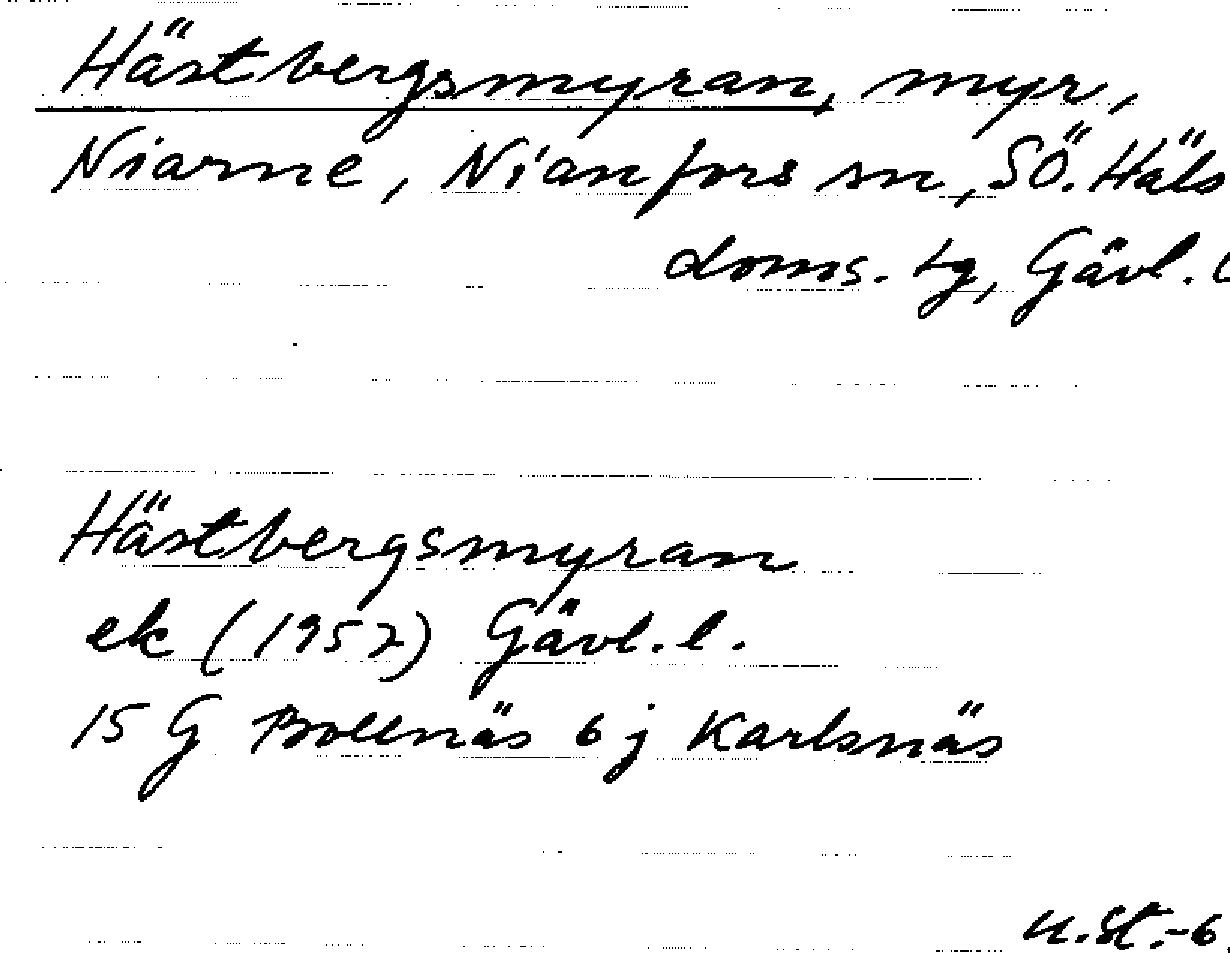 Hästbergsmyran, myr,
Niarne, Nianfors sn, SÖ. Häls
doms. tg, Gävl.
Hästbergsmyran
ek (1957) Gävl. l.
15 G Bollnäs 6 j Karlsnäs
U.St.-6